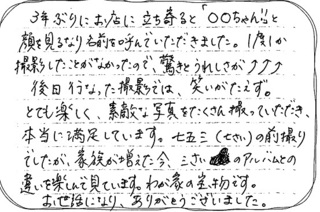 3年ぶりにお店に立ち寄ると「〇〇ちゃん」と
顔を見るなり名前を呼んでいただきました。1度しか
撮影したことがなかったので、驚きとうれしさが↑↑↑
後日行なった撮影では、笑いがたえず。
とても楽しく、素敵な写真をたくさん撮っていただき、
本当に満足しています。七五三(七さい)の前撮り
でしたが、家族が増えた今、三さいのアルバムとの
違いを楽しんで見ています。わが家の宝物です。
お世話になり、ありがとうございました。